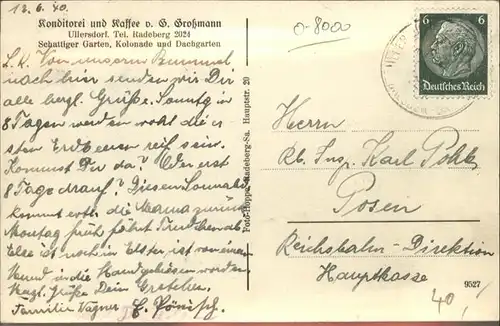 13.6.40.
Konditorei und Kaffee v. G. Großmann
Ullersdorf. Tel. Radeberg 2024
Schattiger Garten, Kolonade und Dachgarten
L. K. Von unserm Bummel
nach hier senden wir Dir
alle herzl. Grüße. Sonntg in
8 Tagen werden wohl die er-
sten Erdbeeren reif sein.
Kommst Du da? Oder erst
8 Tage drauf? Diesen Sonnabd
kommt die Mama zurück
Montag früh fährt
Else ist noch in Elster, ist von einem
Hund in die Hand gebissen worden.
Herzl. Grüße Dein
Familie Wagner
Foto-Hoppe, Radeberg-Sa. Hauptstr. 20
0-8000
6 6
Deutsches Reich
Herrn
Rb. Insp. Karl Pohle
Posen
Reichsbahn-Direktion
Hauptkasse
9527
40,